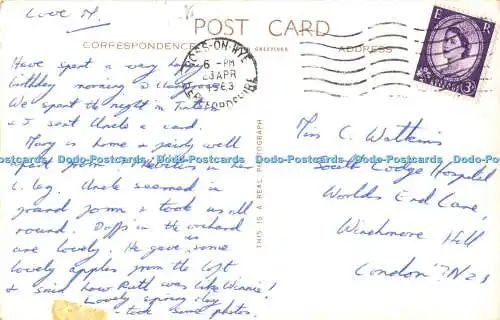 Love M.
POST CARD
CORRESPONDENCE
GREETINGS
ADDRESS
ROSS-ON-WYE
6 - PM
23 APR
1963
HEREFORDSHIRE
E R
3D
Have spent a very happy
birthday morning
We spent the night in Tintern
& I sent Uncle a card.
Mary is home & fairly well
apart from in her
L. leg. Uncle seemed in
grand form & took us all
round. Daffs in the orchard
are lovely. He gave us some
lovely apples from the loft
& said how Ruth was like Winnie!
Lovely spring day
- took some photos.
THIS IS A REAL PHOTOGRAPH
Miss C. Watkins
South Lodge Hospital
Worlds End Lane,
Winchmore Hill
London N21
Dodo-Postcards Dodo-Postcards Dodo-Postcards Dodo-Postcards Dodo-Postcards Dodo-Postcards